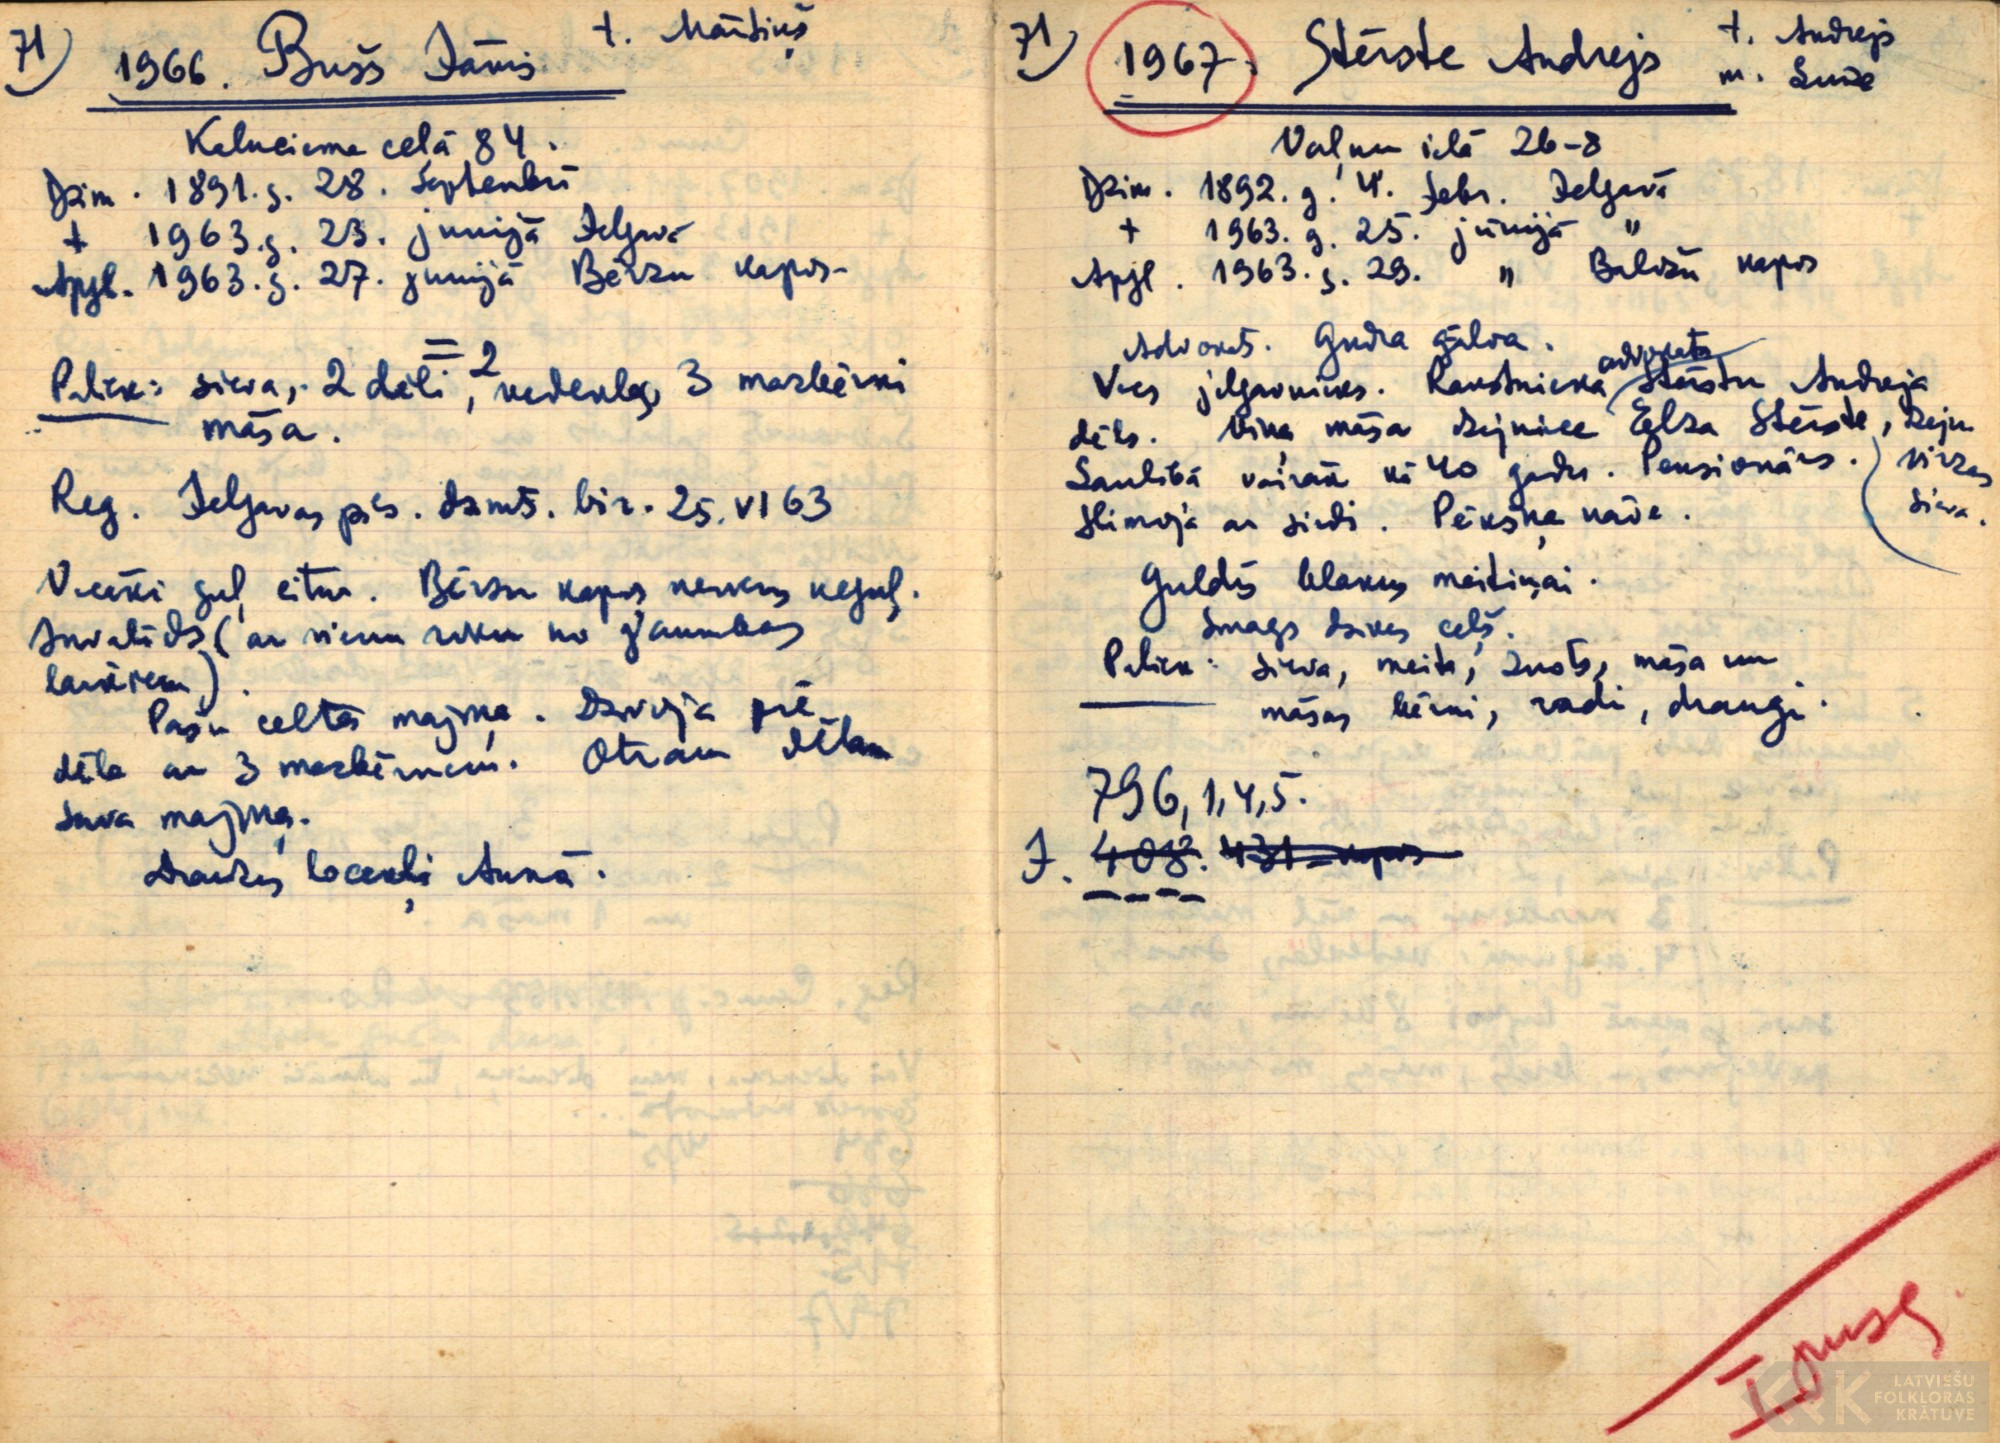 71) 1966. Bušs Jānis t. Mārtiņš
Kalnciema ceļā 84.
Dzim. 1891.g. 28. septembrī
+ 1963.g. 23. jūnijā Jelgavā
Apgl. 1963.g. 27. jūnijā Bērzu kapos
Paliek: sieva, 2 dēli, 2 vedeklas, 3 mazbērni
māsa.
Reg. Jelgavas pils. dzimts. bir. 25.VI 63
Vecāki guļ citur. Bērzu kapos neviens neguļ.
Invalīds (ar vienu roku no jaunības
laikiem).
Pašu celtas mājiņa. Dzīvoja pie
dēla ar 3 mazbērniem. Otram dēlam
sava mājiņa.
Draudzes locekļi Annā.
71) 1967. Stērste Andrejs t. Andrejs
m. Luīze
Vaļņu ielā 26-8
Dzim. 1892.g. 4. febr. Jelgavā
+ 1963.g. 25. jūnijā "
Apgl. 1963.g. 29. " Baložu kapos
Advokāts. Gudra galva.
Vecs jelgavnieks. Rakstnieka advokāta Stērstu Andreja
dēls. Viņa māsa dzejniece Elza Stērste, Edv.
Virzas
sieva.
Laulībā vairāk kā 40 gadu. Pensionārs.
Slimoja ar sirdi. Pēkšņa nāve.
Guldīs blakus meitiņai.
Smags dzīves ceļš.
Paliek: sieva, meita, znots, māsa un
māsas bērni, radi, draugi.
796,1,4,5.
J. 408. 431 = kapos
I pusg
LATVIEŠU
FOLKLORAS
KRĀTUVE